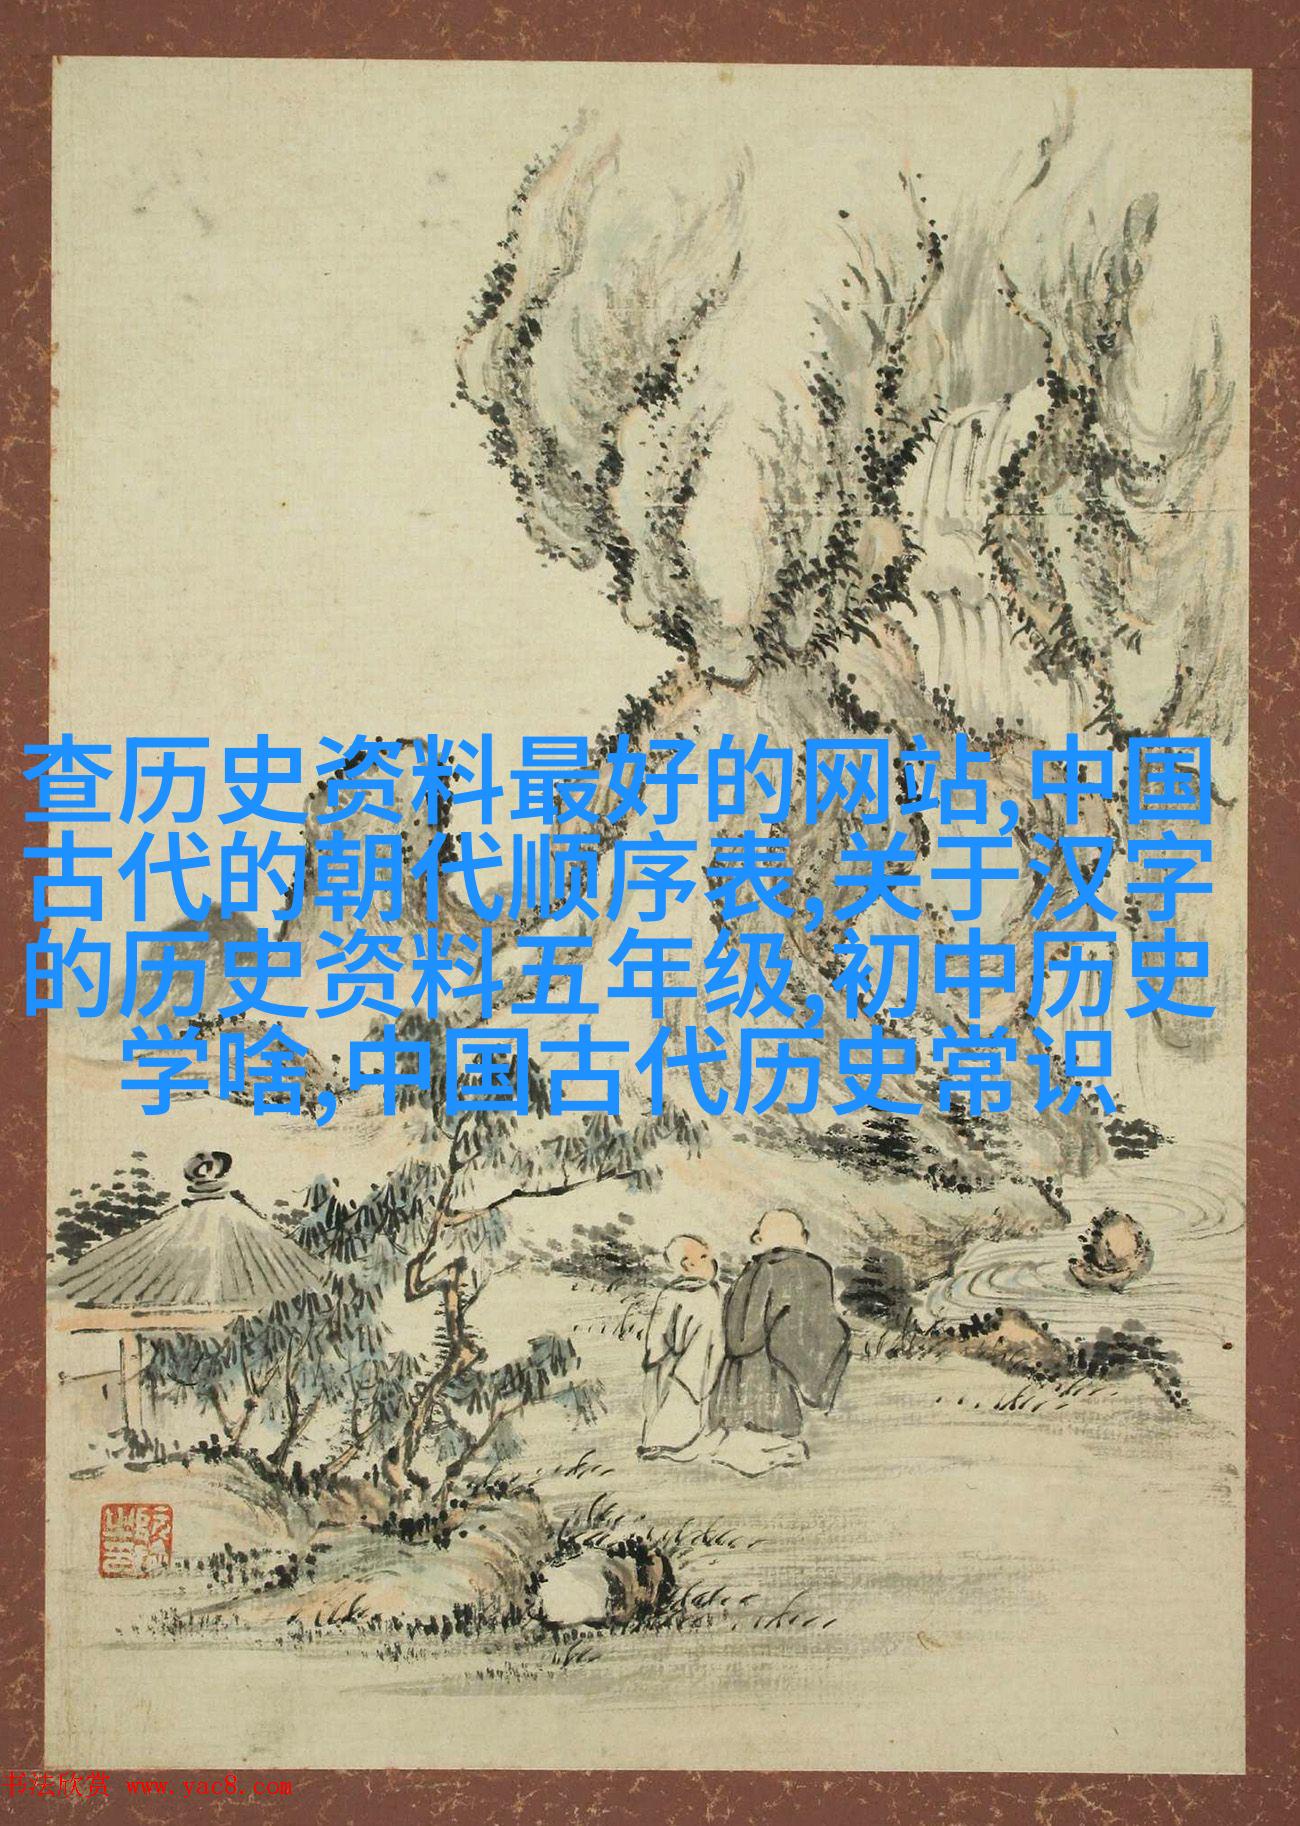 查历史资料最好的网站,中国
古代的朝代顺序表,关于汉字
的历史资料五年级,初中历史
学啥,中国古代历史常识
书法欣赏 www.yac8.com